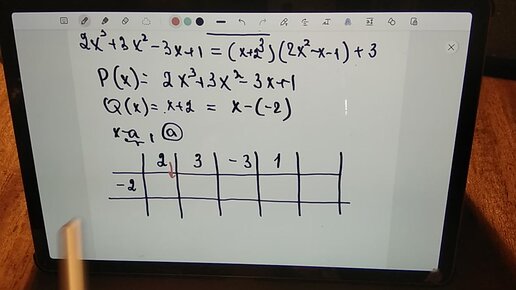 2x³+3x²-3x+1 = (x+2³)(2x²-x-1)+3
P(x)= 2x³+3x²-3x+1
Q(x)= x+2 = x-(-2)
x-a, a
2 3 -3 1
-2